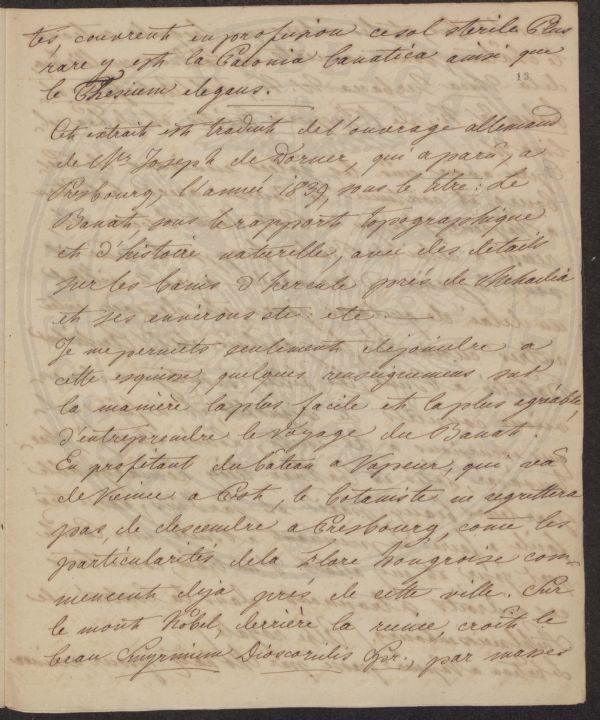 tés couvrent en profusion ce sol sterile. Plus
rare y est la Paeonia banatica ainsi que
13
le Thesium elegans.
Cet extrait est traduit de l'ouvrage allemand
de Mr Joseph de Dorner, qui a parû, a
Presbourg, l'année 1839, sous le titre: Le
Banat, sous le rapport topographique
et d'histoire naturelle, avec des details
sur les bains d'hercule prés de Mehadia
et ses environs etc: etc
Je me permets seulement de joindre a
cette esquisse, quelques renseignemens sur
la manière la plus facile et la plus agréable,
d'entreprendre le Voyage du Banat.
En profitant du bateau a Vapeur, qui va
de Vienne a Pesth, le botaniste ne regrettera
pas, de descendre a Presbourg, come les
particularités de la Flore hongroise com-
mencent deja prés de cette ville. Sur
le mont Kobel, derrière la ruine, croît le
beau Smyrnium Dioscoridis Spr., par masses